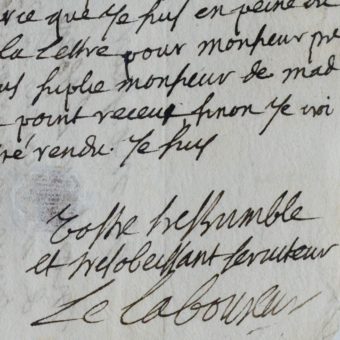 rce que Je suis en peine du
la lettre pour monsieur pre
us suplie monsieur de mad
point receue sinon Je croi
ré rendu. Je suis
Vostre treshumble
et tresobeissant serviteur
Le Laboureur